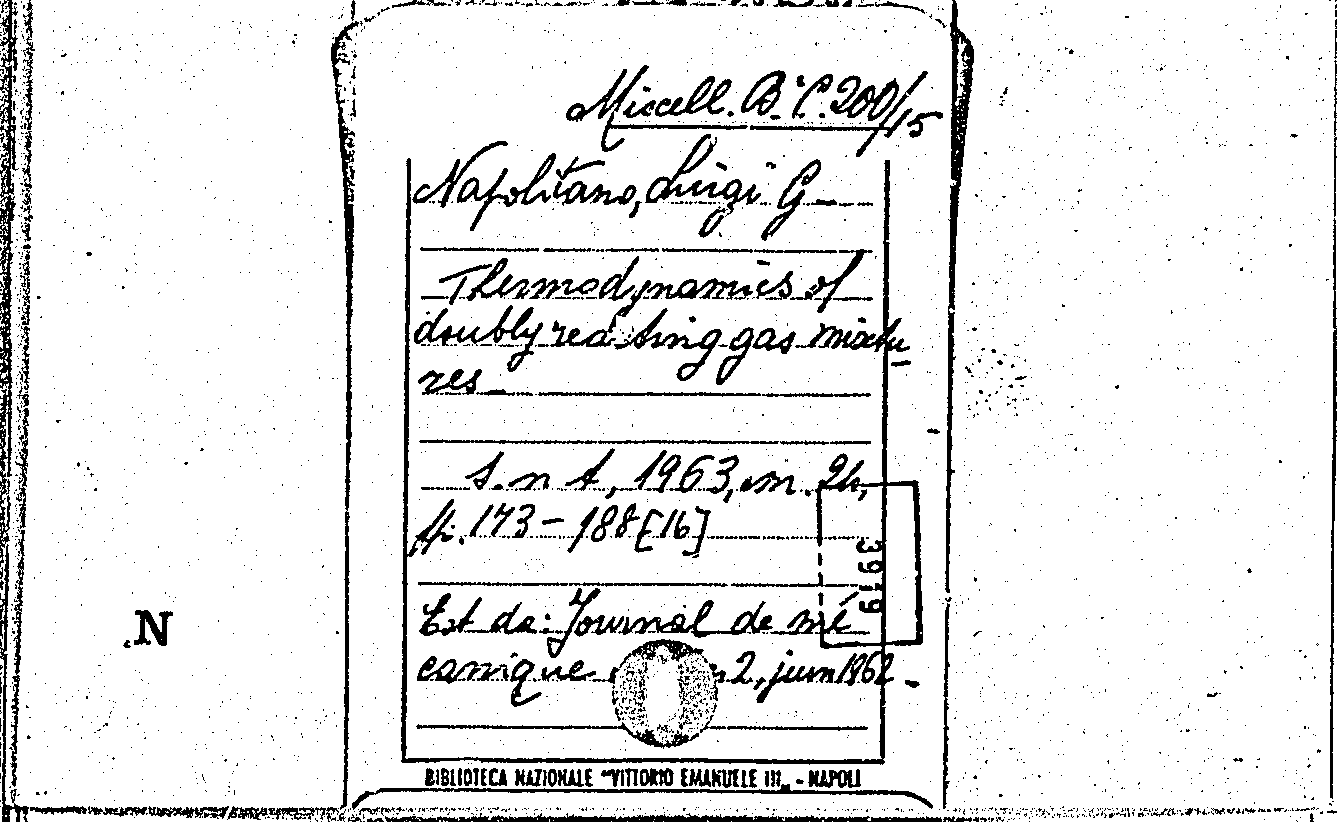 Miscell. B. C. 200/15
Napolitano, Luigi G.
Thermodynamics of
doubly rea ting gas mixtu
res
s. n t, 1963, in. 24,
pp. 173 - 188 [16]
3919
Est da: Journal de mé
canique n 2, juin 1962
N
BIBLIOTECA NAZIONALE "VITTORIO EMANUELE III" - NAPOLI